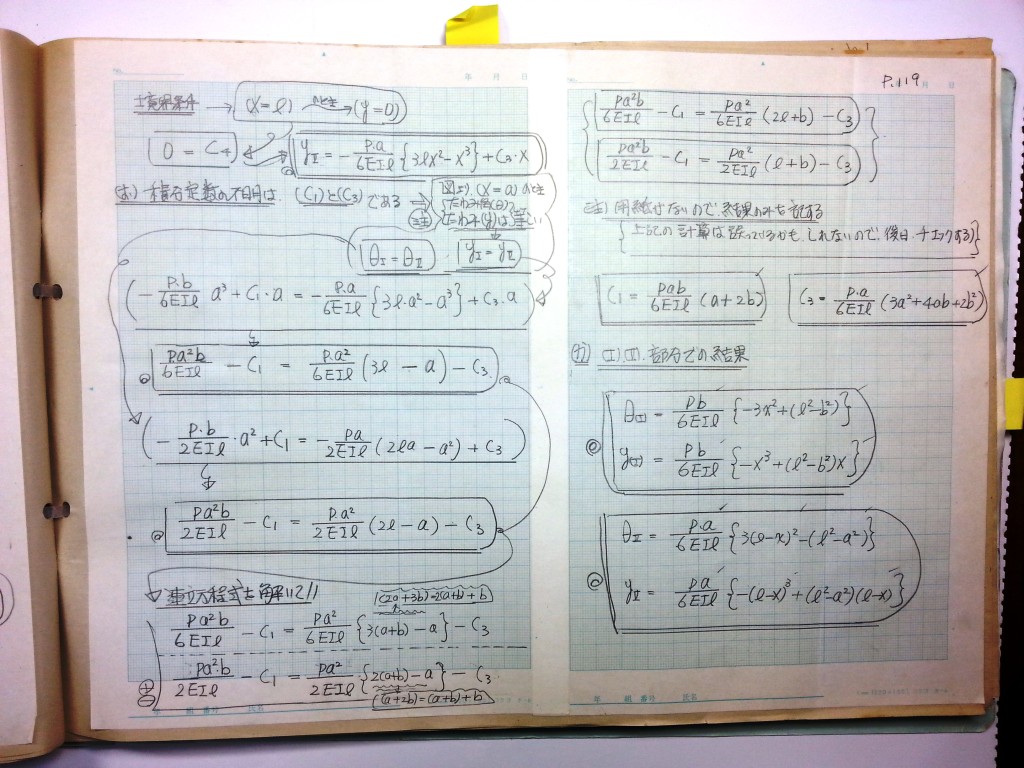 境界条件 → (x=l) のとき → (y=0)
0 = C₄
y_Ⅱ = -P·a/6EIl {3lx²-x³}+C₃·x
(お) 積分定数の不明は、(C₁)と(C₃)である →
図より、(x=a)のとき
たわみ角(θ)、
たわみ(y)は等しい
θ_Ⅰ = θ_Ⅱ
y_Ⅰ = y_Ⅱ
(-P·b/6EIl a³+C₁·a = -P·a/6EIl {3l·a²-a³}+C₃·a)
Pa²b/6EIl - C₁ = Pa²/6EIl (3l-a)-C₃
(-P·b/2EIl ·a²+C₁ = -Pa/2EIl (2la-a²)+C₃)
Pa²b/2EIl - C₁ = Pa²/2EIl (2l-a)-C₃
連立方程式を解いて//
(2a+3b)=2(a+b)+b
Pa²b/6EIl - C₁ = Pa²/6EIl {3(a+b)-a}-C₃
Pa²·b/2EIl - C₁ = Pa²/2EIl {2(a+b)-a}-C₃
(a+2b)=(a+b)+b
年 組 番号 氏名
年 月 日
P.119
月 日
Pa²b/6EIl - C₁ = Pa²/6EIl (2l+b)-C₃
Pa²b/2EIl - C₁ = Pa²/2EIl (l+b)-C₃
(注) 用紙はないので、結果のみを記する
{上記の計算は誤っているかも、しれないので、後日、チェックする}
C₁ = Pab/6EIl (a+2b)
C₃ = P·a/6EIl (3a²+4ab+2b²)
(カ) (Ⅰ),(Ⅱ).部分での結果
θ(Ⅰ) = Pb/6EIl {-3x²+(l²-b²)}
y(Ⅰ) = Pb/6EIl {-x³+(l²-b²)x}
θ_Ⅱ = P·a/6EIl {3(l-x)²-(l²-a²)}
y_Ⅱ = Pa/6EIl {-(l-x)³+(l²-a²)(l-x)}
年 組 番号 氏名